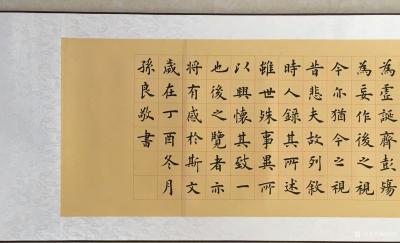 為虛誕齊彭殤
為妄作後之視
今亦猶今之視
昔悲夫故列敘
時人錄其所述
雖世殊事異所
以興懷其致一
也後之覽者亦
將有感於斯文
歲在丁酉冬月
孫良敬書